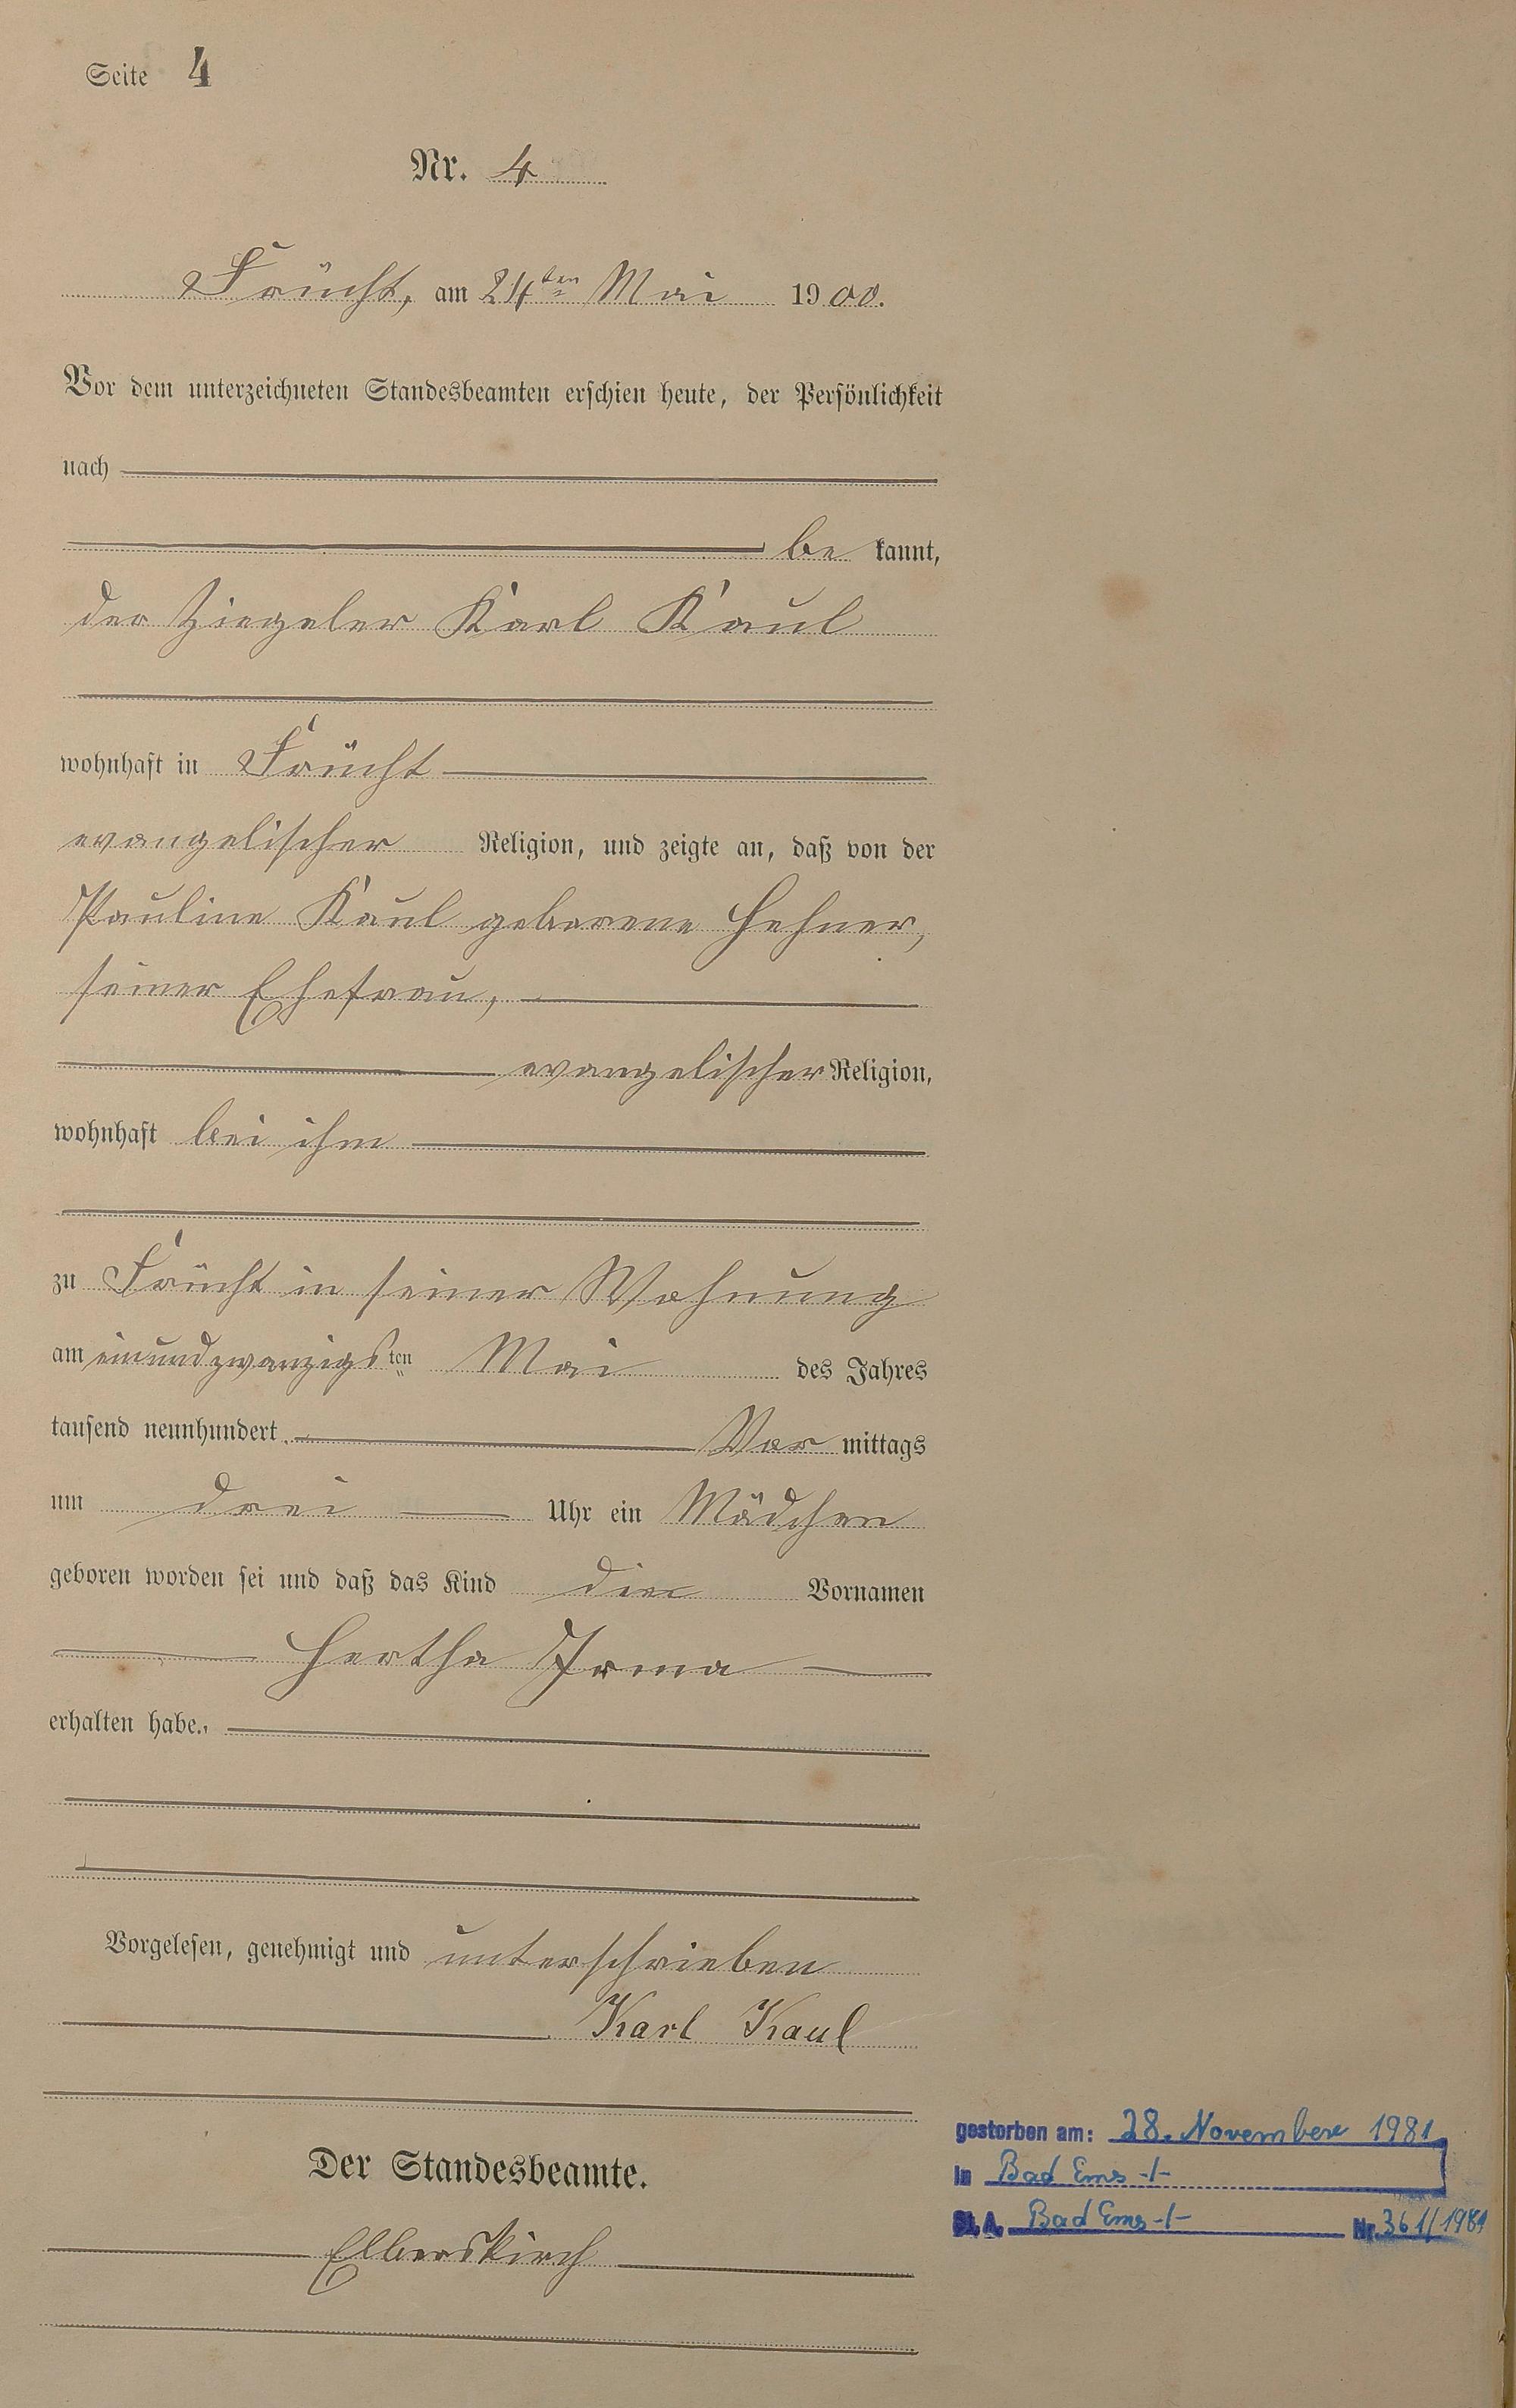 Seite 4
Nr. 4
Frücht, am 24ten Mai 1900.
Vor dem unterzeichneten Standesbeamten erschien heute, der Persönlichkeit
nach
be kannt,
der Ziegeler Karl Kaul
wohnhaft in Frücht
evangelischer Religion, und zeigte an, daß von der
Pauline Kaul geborene Hehner,
seiner Ehefrau,
evangelischer Religion,
wohnhaft bei ihm
zu Frücht in seiner Wohnung
am einundzwanzigsten Mai des Jahres
tausend neunhundert Vor mittags
um drei Uhr ein Mädchen
geboren worden sei und daß das Kind die Vornamen
Hertha Irma
erhalten habe.
Vorgelesen, genehmigt und unterschrieben
Karl Kaul
Der Standesbeamte.
Elberskirch
gestorben am: 28. November 1981
in Bad Ems -/-
St. A. Bad Ems -/- Nr. 361/1981